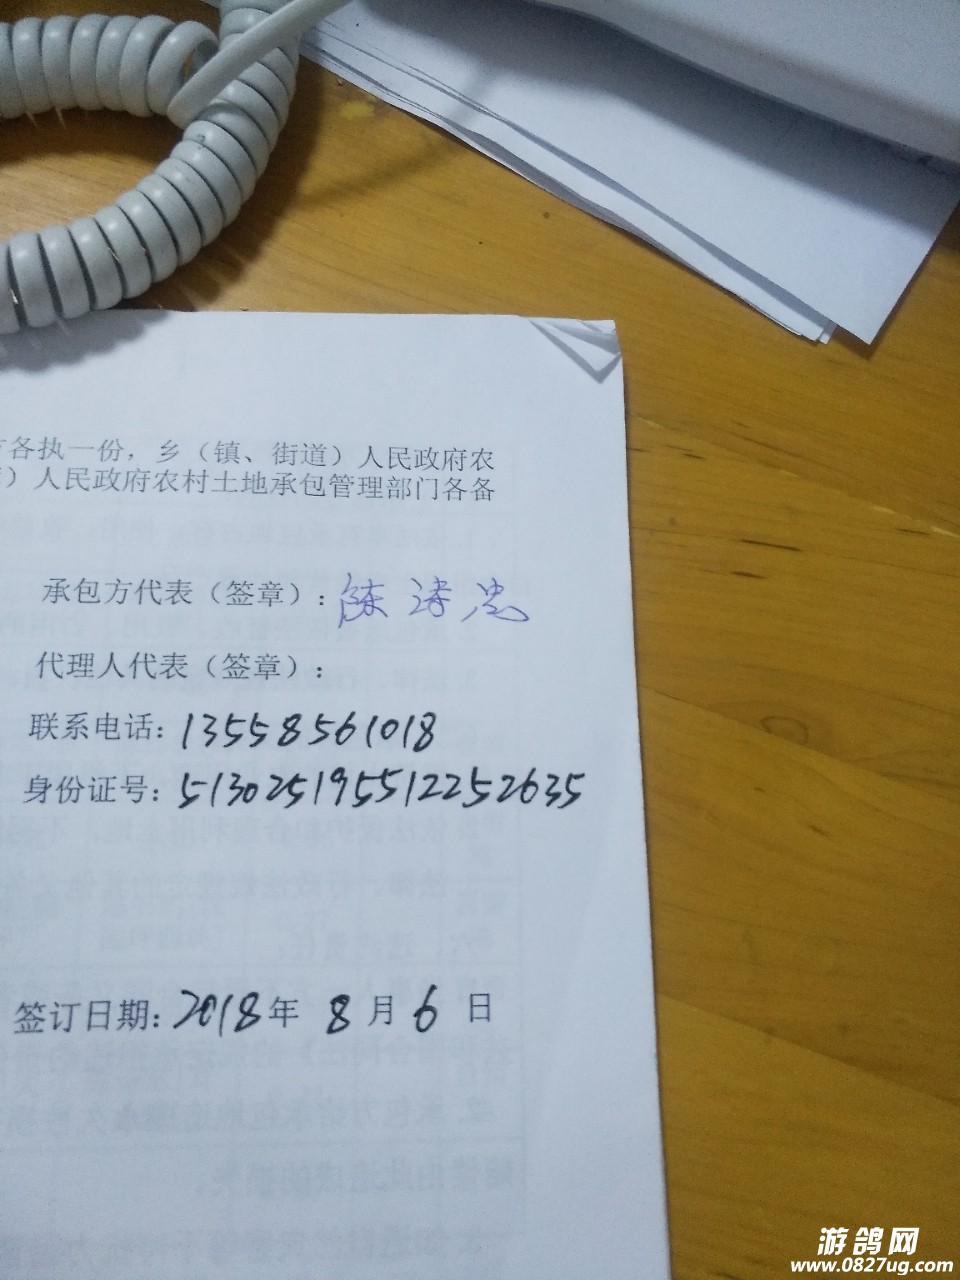 各执一份，乡（镇、街道）人民政府农
）人民政府农村土地承包管理部门各备
承包方代表（签章）：陈诗忠
代理人代表（签章）：
联系电话：13558561018
身份证号：513025195512252635
签订日期：2018年 8 月 6 日
游鸽网
www.0827ug.com